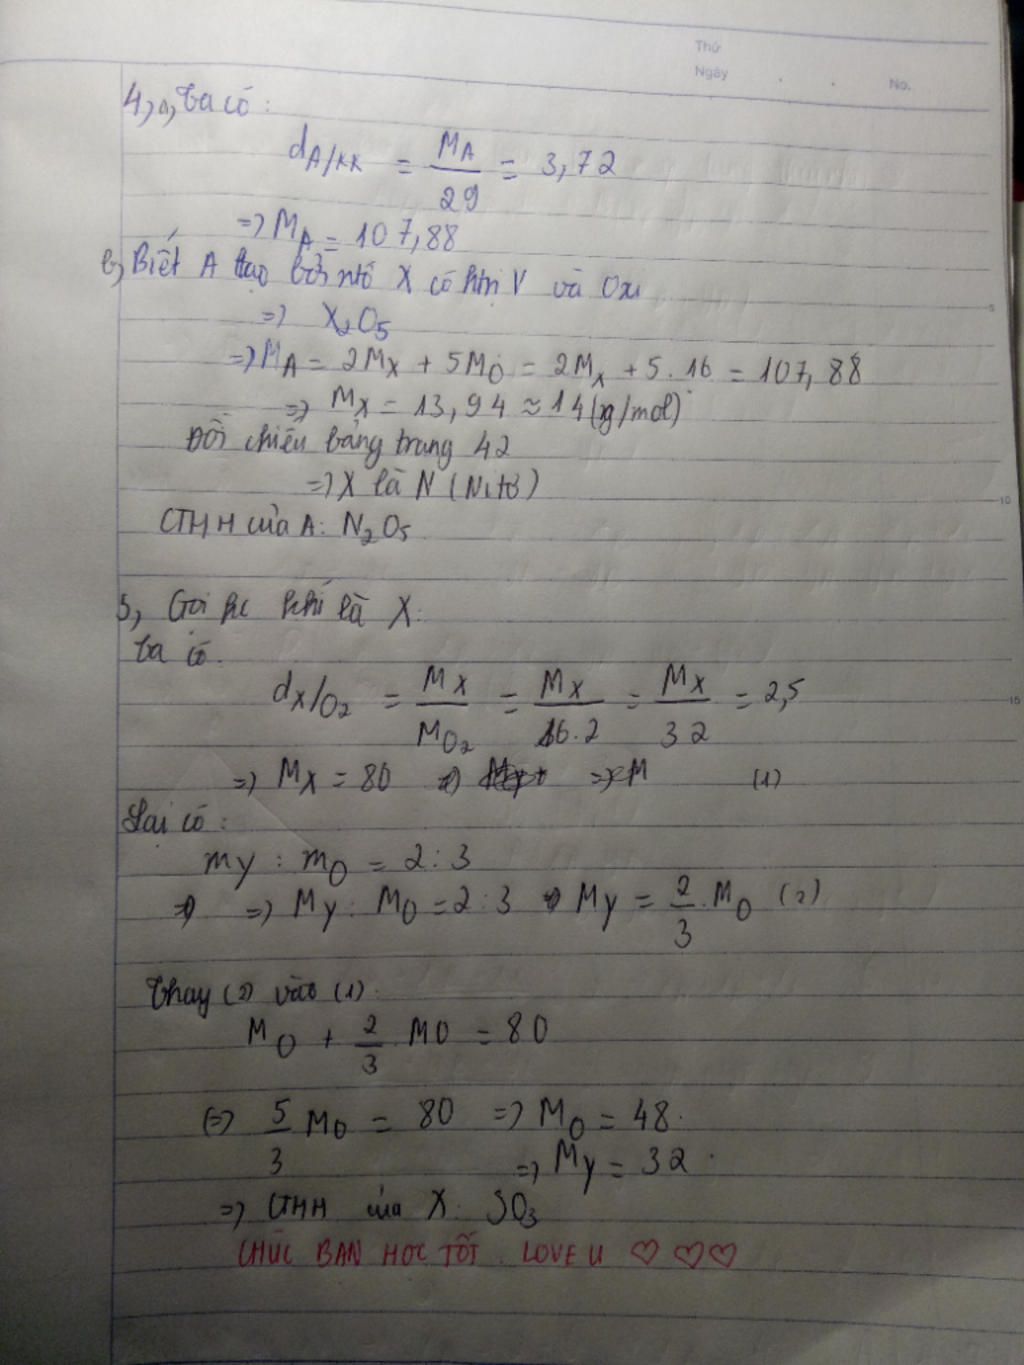 Thứ
Ngày . . No.
4, a, Ta có :
dA/KK = MA/29 = 3,72
=> MA = 107,88
b, Biết A tạo bởi ntố X có htrị V và Oxi
=> X₂O₅
=> MA = 2MX + 5MO = 2MX + 5.16 = 107,88
=> MX = 13,94 ≈ 14 (g/mol)
Đối chiếu bảng trang 42
=> X là N (Nitơ)
CTHH của A: N₂O₅
5, Gọi hc khí là X.
Ta có.
dX/O₂ = MX/MO₂ = MX/16.2 = MX/32 = 2,5
=> MX = 80 => M (1)
Lại có :
my : mO = 2 : 3
=> My : MO = 2 : 3 => My = 2/3 . MO (2)
Thay (2) vào (1).
MO + 2/3 MO = 80
<=> 5/3 MO = 80 => MO = 48.
=> My = 32.
=> CTHH của X: SO₃
CHÚC BẠN HỌC TỐT. LOVE U ♡ ♡ ♡
5
10
15